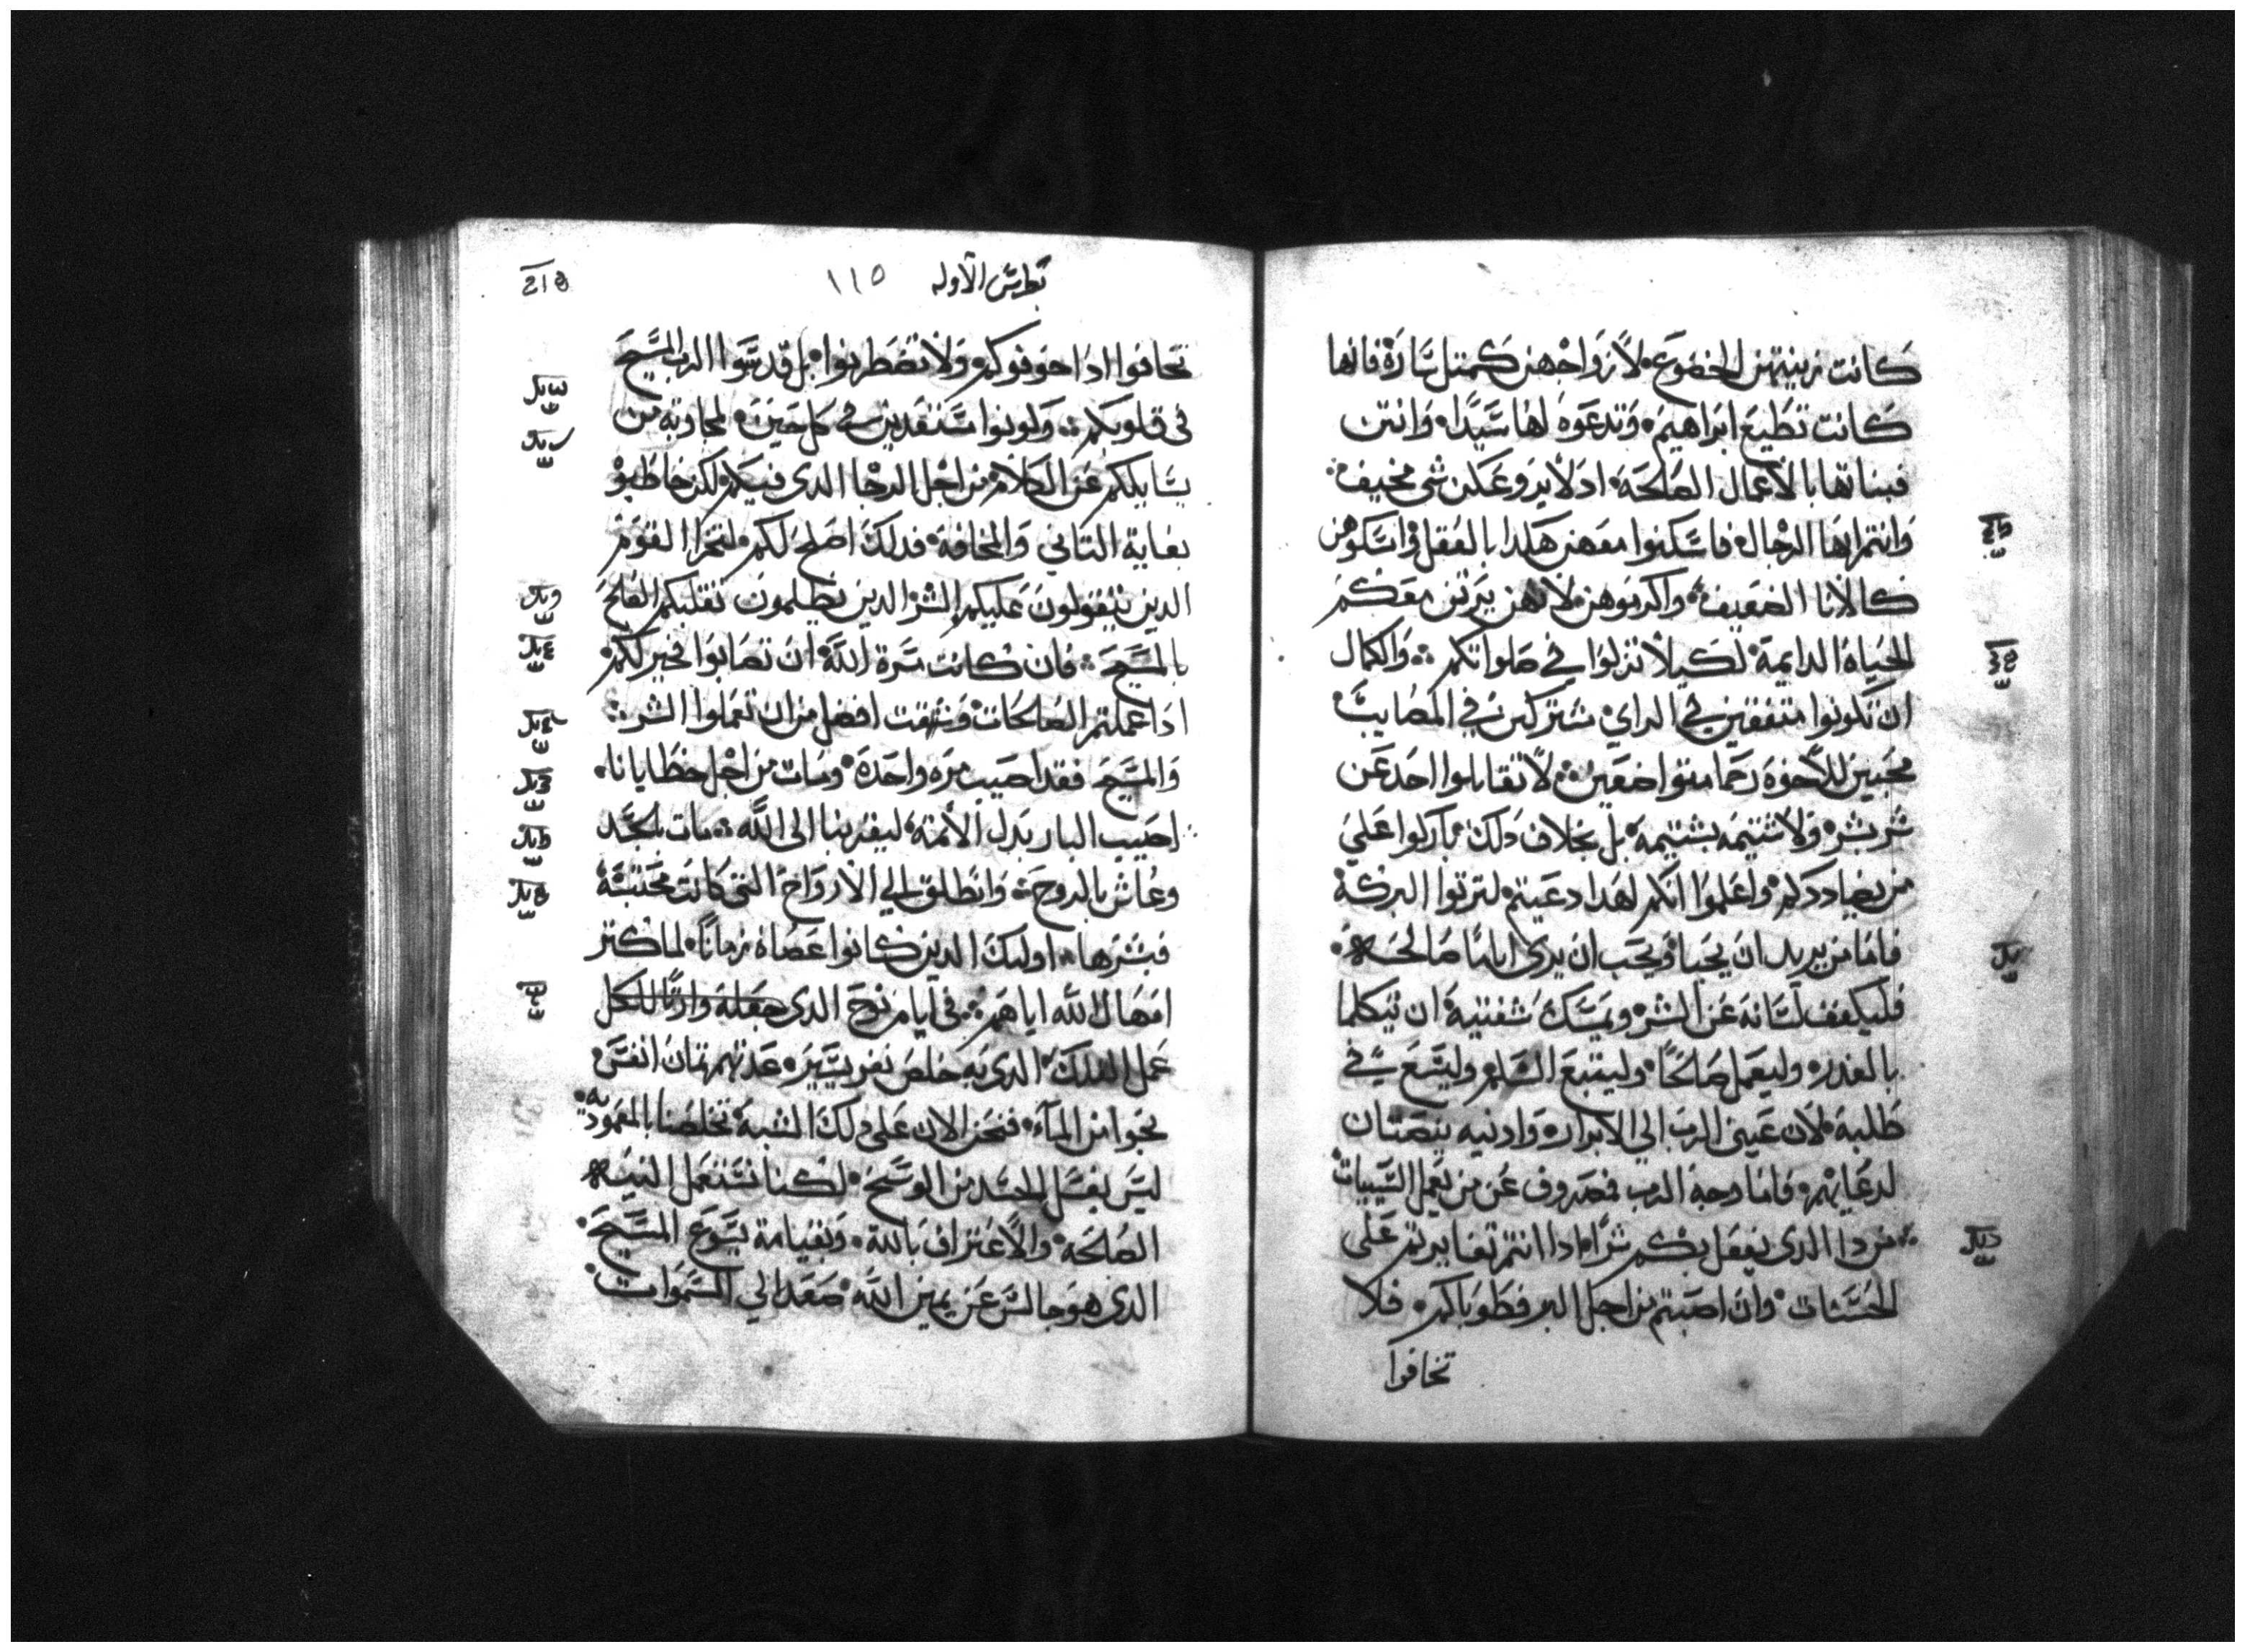 كانت زينتهن الخضوع لازواجهن كمتل سارة فانها
كانت تطيع ابراهيم وتدعوه لها سيدا وانتن
فبناتها بالاعمال الصالحة اد لا يروعكن شي مخيف
وانتم ايها الرجال فاسكنوا معهن هكدا بالعقل واسكوهن
كالانا الضعيف واكرموهن لانهن يرتن معكم
الحياة الدايمة لكيلا تزلوا في صلواتكم والكمال
ان تكونوا متفقين في الراي مشتركين في المصايب
محبين للاخوه رحما متواضعين لا تقابلوا احد عن
شر بشر ولا شتيمه بشتيمه بل بخلاف دلك باركوا علي
من يضاددكم واعلموا انكم لهدا دعيتم لترتوا البركة
فاما من يريد ان يحيا ويحب ان يري اياما صالحه
فليكفف لسانه عن الشر ويمسك شفتيه ان تتكلما
بالغدر وليعمل صالحا وليتبع السلم وليسع في
طلبه لان عيني الرب الي الابرار وادنيه ينصتان
لدعايهم فاما وجه الرب فمصروف عن من يعمل السييات
من دا الدي يفعل بكم شرا ادا انتم تغايرتم على
الحسنات وان اصبتم من اجل البر فطوباكم فلا
تخافوا
بطرس الاوله ١١٥
تخافوا ادا خوفوكم ولا تضطربوا بل قدسوا الرب المسيح
في قلوبكم وكونوا مستعدين في كل حين لمجاوبة من
يسايلكم عن الكلام من اجل الرجا الدي فيكم لكن خاطبو
بغاية التاني والمخافة فدلك اصلح لكم لتخزا القوم
الدين يتقولون عليكم الشر الدين يظلمون تقلبكم الصالح
بالمسيح فان كانت مسرة الله ان تصابوا فخير لكم
ادا عملتم الصالحات وشهقت افضل من ان تعملوا الشر
والمسيح فقد اصيب مره واحدة ومات من اجل خطايانا
اصيب البار بدل الاتمة ليقربنا الى الله مات بالجسد
وعاش بالروح وانطلق الي الارواح التي كانت محتبسة
فبشرها اوليك الدين كانوا عصاة زمانا لما كتر
امهال الله اياهم في ايام نوح الدي جعله وارتا للكل
عمل الفلك الدي به خلص نفر يسير عدتهم تمان انفس
نجوا من الماء فنحن الان على دلك الشبه تخلصنا بالمعموديه
ليس بغسل الجسد من الوسخ لكنا نستعمل النيه
الصالحة والاعتراف بالله وبقيامة يسوع المسيح
الدي هو جالس عن يمين الله صعد الي السموات